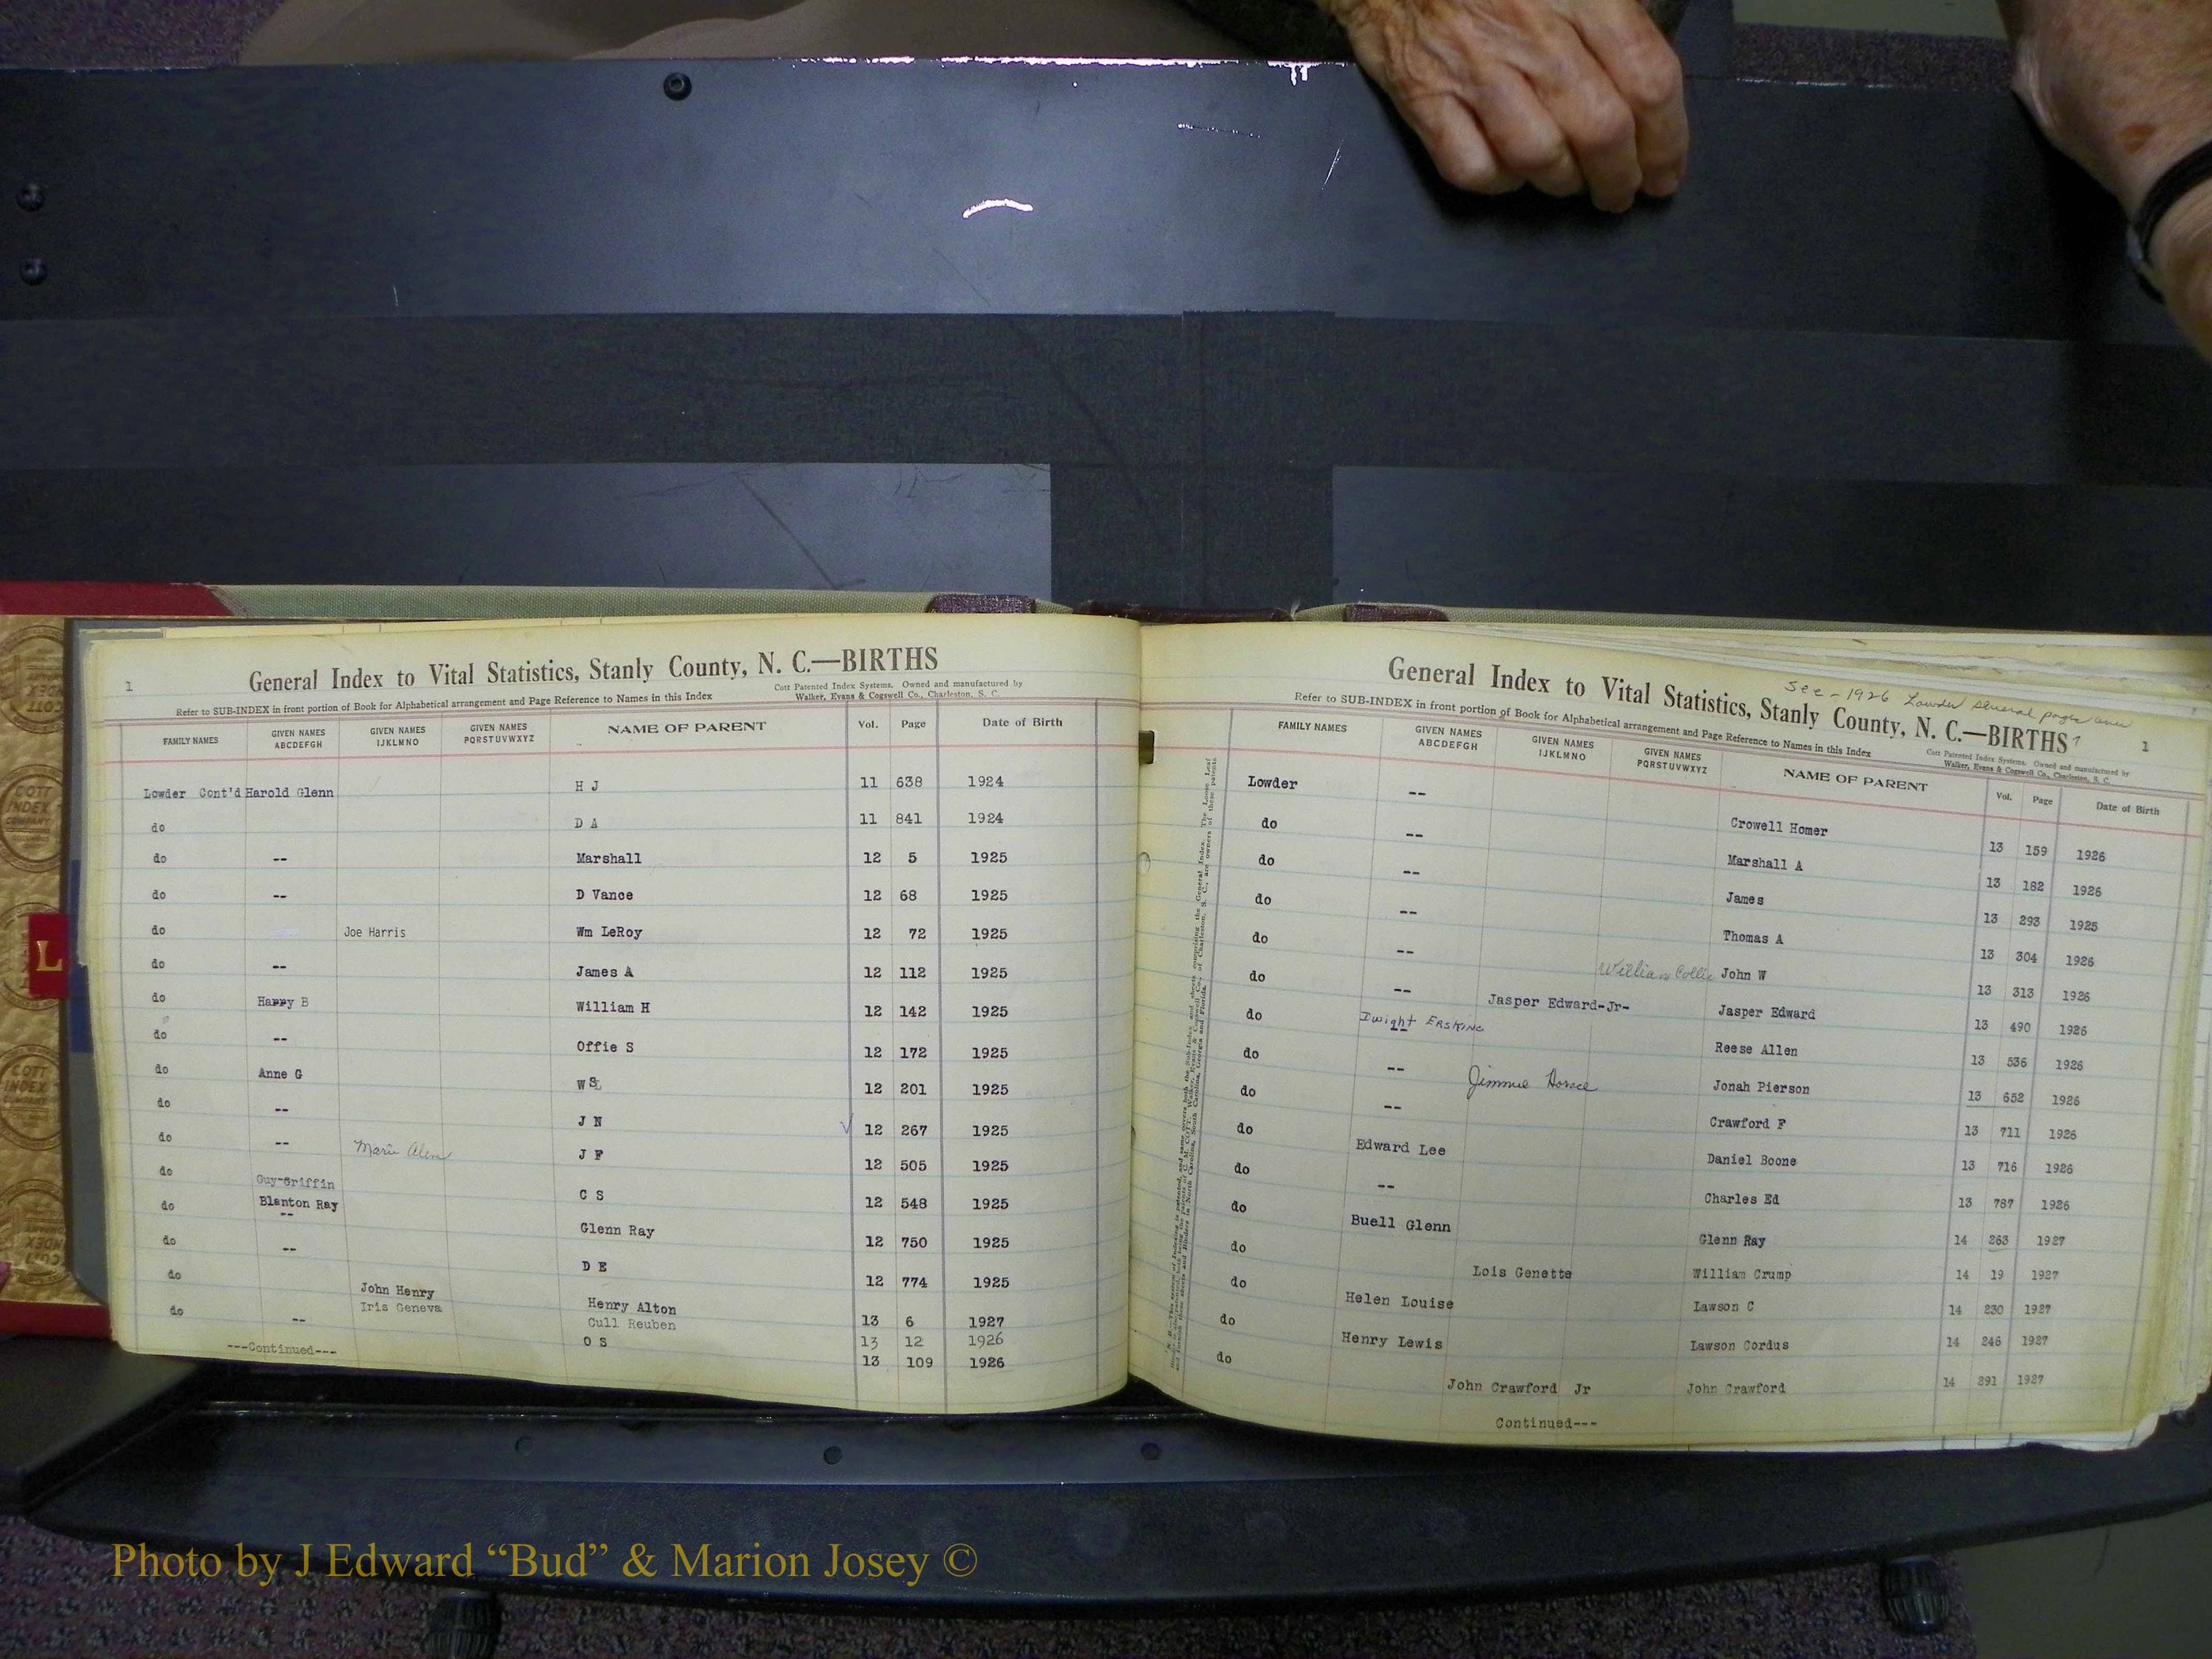 1
General Index to Vital Statistics, Stanly County, N. C.—BIRTHS
Cott Patented Index Systems. Owned and manufactured by
Walker, Evans & Cogswell Co., Charleston, S. C.
Refer to SUB-INDEX in front portion of Book for Alphabetical arrangement and Page Reference to Names in this Index
FAMILY NAMES GIVEN NAMES ABCDEFGH GIVEN NAMES IJKLMNO GIVEN NAMES PQRSTUVWXYZ NAME OF PARENT Vol. Page Date of Birth
Lowder Cont'd Harold Glenn H J 11 638 1924
do D A 11 841 1924
do -- Marshall 12 5 1925
do -- D Vance 12 68 1925
do Joe Harris Wm LeRoy 12 72 1925
do -- James A 12 112 1925
do Happy B William H 12 142 1925
do -- Offie S 12 172 1925
do Anne G W S 12 201 1925
do -- J N 12 267 1925
do -- Marie J F 12 505 1925
do Guy-Griffin C S 12 548 1925
do Blanton Ray -- Glenn Ray 12 750 1925
do -- D E 12 774 1925
do John Henry Henry Alton 13 6 1927
Iris Geneva Cull Reuben 13 12 1926
do -- O S 13 109 1926
---Continued---
See - 1926 Lowder several pages over
General Index to Vital Statistics, Stanly County, N. C.—BIRTHS
1
Cott Patented Index Systems. Owned and manufactured by
Walker, Evans & Cogswell Co., Charleston, S. C.
Refer to SUB-INDEX in front portion of Book for Alphabetical arrangement and Page Reference to Names in this Index
FAMILY NAMES GIVEN NAMES ABCDEFGH GIVEN NAMES IJKLMNO GIVEN NAMES PQRSTUVWXYZ NAME OF PARENT Vol. Page Date of Birth
Lowder -- Crowell Homer 13 159 1926
do -- Marshall A 13 182 1926
do -- James 13 293 1925
do -- Thomas A 13 304 1926
do -- William Collie John W 13 313 1926
do -- Jasper Edward-Jr- Jasper Edward 13 490 1926
do Dwight Erskine Reese Allen 13 536 1926
do -- Jimmie Horace Jonah Pierson 13 652 1926
do -- Crawford F 13 711 1926
do Edward Lee Daniel Boone 13 716 1926
do -- Charles Ed 13 787 1926
do Buell Glenn Glenn Ray 14 263 1927
do Lois Genette William Crump 14 19 1927
do Helen Louise Lawson C 14 230 1927
do Henry Lewis Lawson Cordus 14 246 1927
do John Crawford Jr John Crawford 14 291 1927
Continued---
COTT
INDEX
COMPANY
L
Photo by J Edward “Bud” & Marion Josey ©